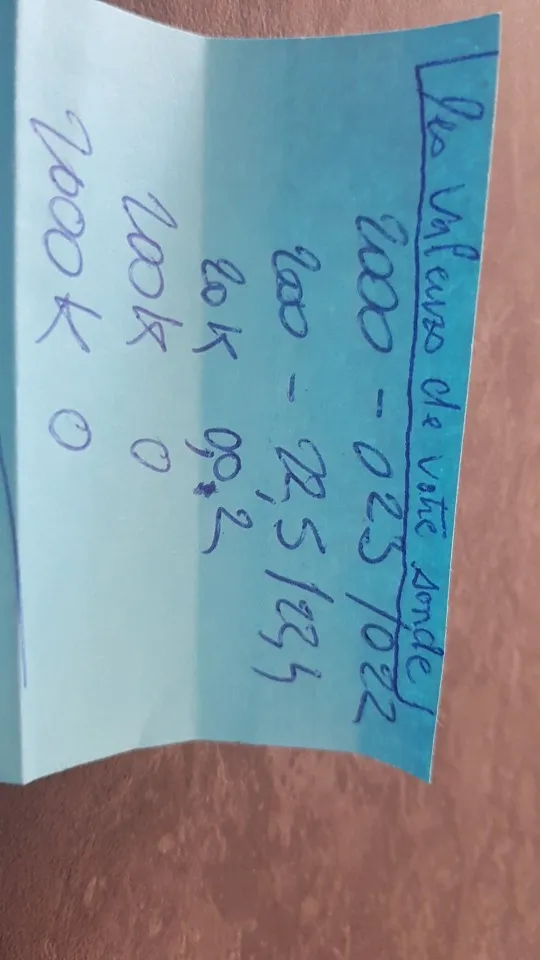 les valeurs de votre sonde
2000 - 023/022
200 - 22,5/23,4
20K 0,0.2
200K 0
2000K 0